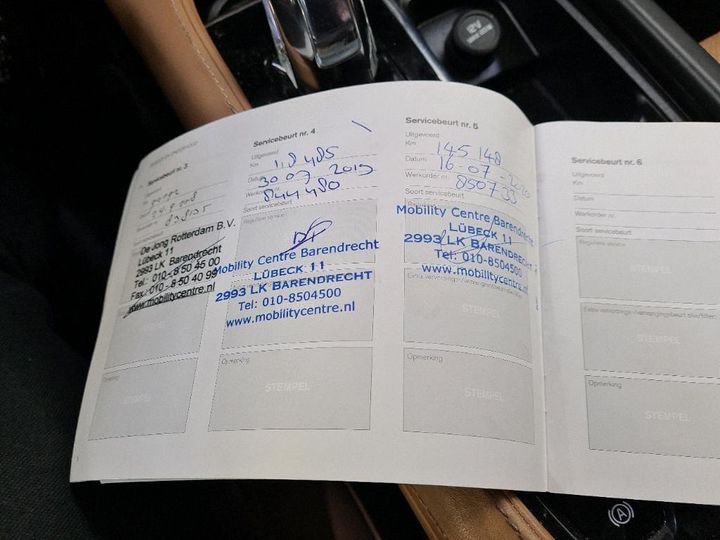 12V
Servicebeurt nr. 3
De Jong Rotterdam B.V.
Lübeck 11
2993 LK Barendrecht
Tel.: 010 - 8 50 45 00
Fax.: 010 - 8 50 40 99
www.mobilitycentre.nl
STEMPEL
Servicebeurt nr. 4
Uitgevoerd
Km 118 485
Datum 30 07 2019
Werkorder nr. 844480
Soort servicebeurt
Reguliere service
Mobility Centre Barendrecht
LÜBECK 11
2993 LK BARENDRECHT
Tel: 010-8504500
www.mobilitycentre.nl
Opmerking
STEMPEL
Servicebeurt nr. 5
Uitgevoerd
Km 145 148
Datum 16-07-2020
Werkorder nr. 850733
Soort servicebeurt
Mobility Centre Barendrecht
LÜBECK 11
2993 LK BARENDRECHT
Tel: 010-8504500
www.mobilitycentre.nl
STEMPEL
Opmerking
STEMPEL
Servicebeurt nr. 6
Uitgevoerd
Km
Datum
Werkorder nr.
Soort servicebeurt
Reguliere service
STEMPEL
Opmerking
STEMPEL
A